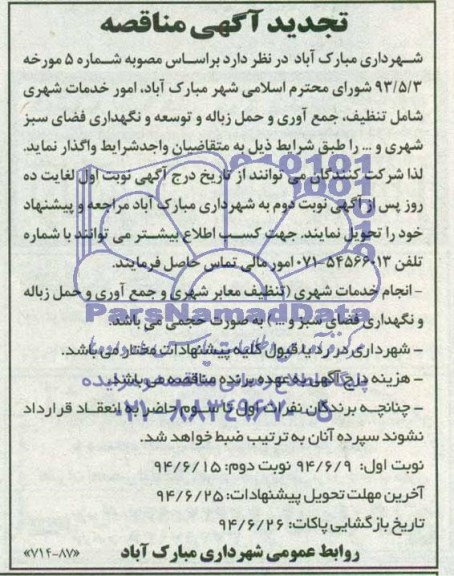 تجدید آگهی مناقصه
شهرداری مبارک آباد در نظر دارد براساس مصوبه شماره ۵ مورخه
۹۳/۵/۳ شورای محترم اسلامی شهر مبارک آباد، امور خدمات شهری
شامل تنظیف، جمع آوری و حمل زباله و توسعه و نگهداری فضای سبز
شهری و ... را طبق شرایط ذیل به متقاضیان واجدشرایط واگذار نماید.
لذا شرکت کنندگان می توانند از تاریخ درج آگهی نوبت اول لغایت ده
روز پس از آگهی نوبت دوم به شهرداری مبارک آباد مراجعه و پیشنهاد
خود را تحویل نمایند. جهت کسب اطلاع بیشتر می توانند با شماره
تلفن ۵۴۵۶۶۰۱۳-۰۷۱ امور مالی تماس حاصل فرمایند.
- انجام خدمات شهری (تنظیف معابر شهری و جمع آوری و حمل زباله
و نگهداری فضای سبز و ...) به صورت حجمی می باشد.
ParsNamadData
- شهرداری در رد یا قبول کلیه پیشنهادات مختار می باشد.
- هزینه درج آگهی به عهده برنده مناقصه می باشد.
۰۲۱-۸۸۳۴۹۶۷۰-۵
- چنانچه برندگان نفرات اول تا سوم حاضر به انعقاد قرارداد
نشوند سپرده آنان به ترتیب ضبط خواهد شد.
نوبت اول: ۹۴/۶/۹ نوبت دوم: ۹۴/۶/۱۵
آخرین مهلت تحویل پیشنهادات: ۹۴/۶/۲۵
تاریخ بازگشایی پاکات: ۹۴/۶/۲۶
روابط عمومی شهرداری مبارک آباد
«۷۱۴-۸۷»